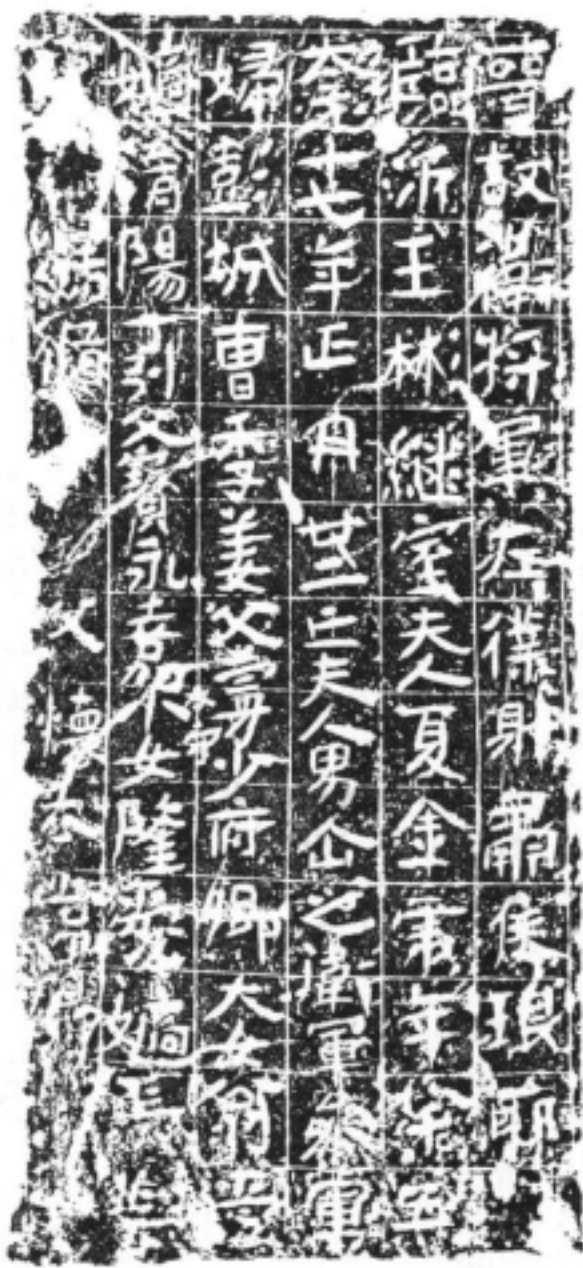 晉故衛將軍左僕射肅侯琅耶
臨沂王彬継室夫人夏金虎年八十五
太元十七年正月廿二亡夫人男企之衛軍參軍
婦彭城曹季姜父蔓少府卿大女翁愛
適淯陽丁引父寶永嘉太守小女隆愛適長樂
馮循父懷太常卿